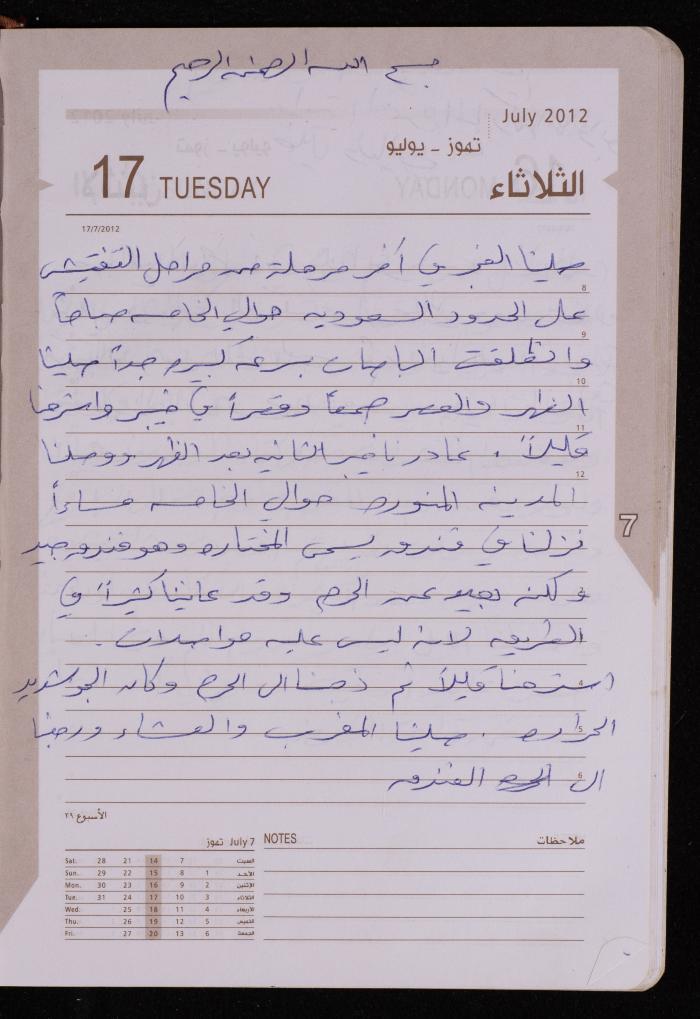 بسم الله الرحمن الرحيم
July 2012
تموز - يوليو
17 TUESDAY
الثلاثاء
17/7/2012
صلينا الفجر في آخر مرحلة من مراحل التفتيش
8
على الحدود السعوديه حوالي الخامسه صباحاً
9
وانطلقت الباصات بسرعه كبيره جداً صلينا
10
الظهر والعصر جمعاً وقصراً في خيبر واسترحنا
11
قليلاً . غادرنا خيبر الثانيه بعد الظهر ووصلنا
12
المدينه المنوره حوالي الخامسه مساءاً
نزلنا في فندق يسمى المختاره وهو فندق جيد
7
ولكنه بعيد عن الحرم وقد عانينا كثيراً في
2
الطريق لانه ليس عليه مواصلات .
استرحنا قليلاً ثم ذهبنا الى الحرم وكان الجو شديد
4
الحراره . صلينا المغرب والعشاء ورجعنا
5
الى الفندق
6
الأسبوع ٢٩
July 7 تموز
NOTES
ملاحظات
Sat. 28 21 14 7 السبت
Sun. 29 22 15 8 1 الأحد
Mon. 30 23 16 9 2 الاثنين
Tue. 31 24 17 10 3 الثلاثاء
Wed. 25 18 11 4 الأربعاء
Thu. 26 19 12 5 الخميس
Fri. 27 20 13 6 الجمعة